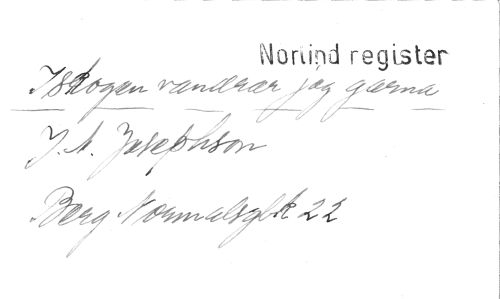 Norlind register
I skogen vandrar jag gærna
J. A. Josephson
Berg Normalsglk 22